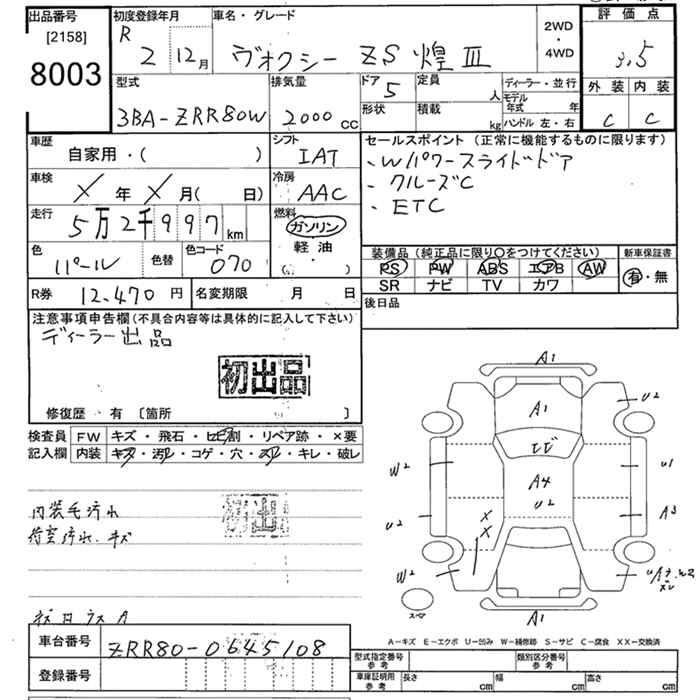 出品番号
[2158]
8003
初度登録年月
R 2 12月
車名・グレード
ヴォクシー ZS 煌Ⅲ
2WD
・
4WD
評価点
3.5
外装 内装
C C
型式
3BA-ZRR80W
排気量
2000 cc
ドア 5
形状
定員 人
積載 kg
ディーラー・並行
モデル年式 年
ハンドル 左・右
車歴
自家用・( )
シフト
IAT
車検
X 年 X 月( 日)
冷房
AAC
走行
5万2千997 km
燃料
ガソリン
軽油
( )
色
パール
色替
色コード
070
R券 12,470 円
名変期限 月 日
セールスポイント(正常に機能するものに限ります)
・Wパワースライドドア
・クルーズC
・ETC
装備品(純正品に限り○をつけてください)
新車保証書
PS PW ABS エアB AW
SR ナビ TV カワ
有・無
後日品
注意事項申告欄(不具合内容等は具体的に記入して下さい)
ディーラー出品
初出品
修復歴 有 〔箇所 〕
検査員記入欄
FW キズ・飛石・ヒビ割・リペア跡・×要
内装 キズ・汚れ・コゲ・穴・スレ・キレ・破レ
内装毛汚れ
荷室汚れ、キズ
初出
A1
U2
A1
ヒビ
W2
U1
A4
U2
U2
A3
X
X
W2
スペア
A1
A-キズ E-エクボ U-凹み W-補修跡 S-サビ C-腐食 XX-交換済
車台番号
ZRR80-0645108
登録番号
型式指定番号 参考
類別区分番号 参考
車庫証明用 参考
長さ cm
幅 cm
高さ cm